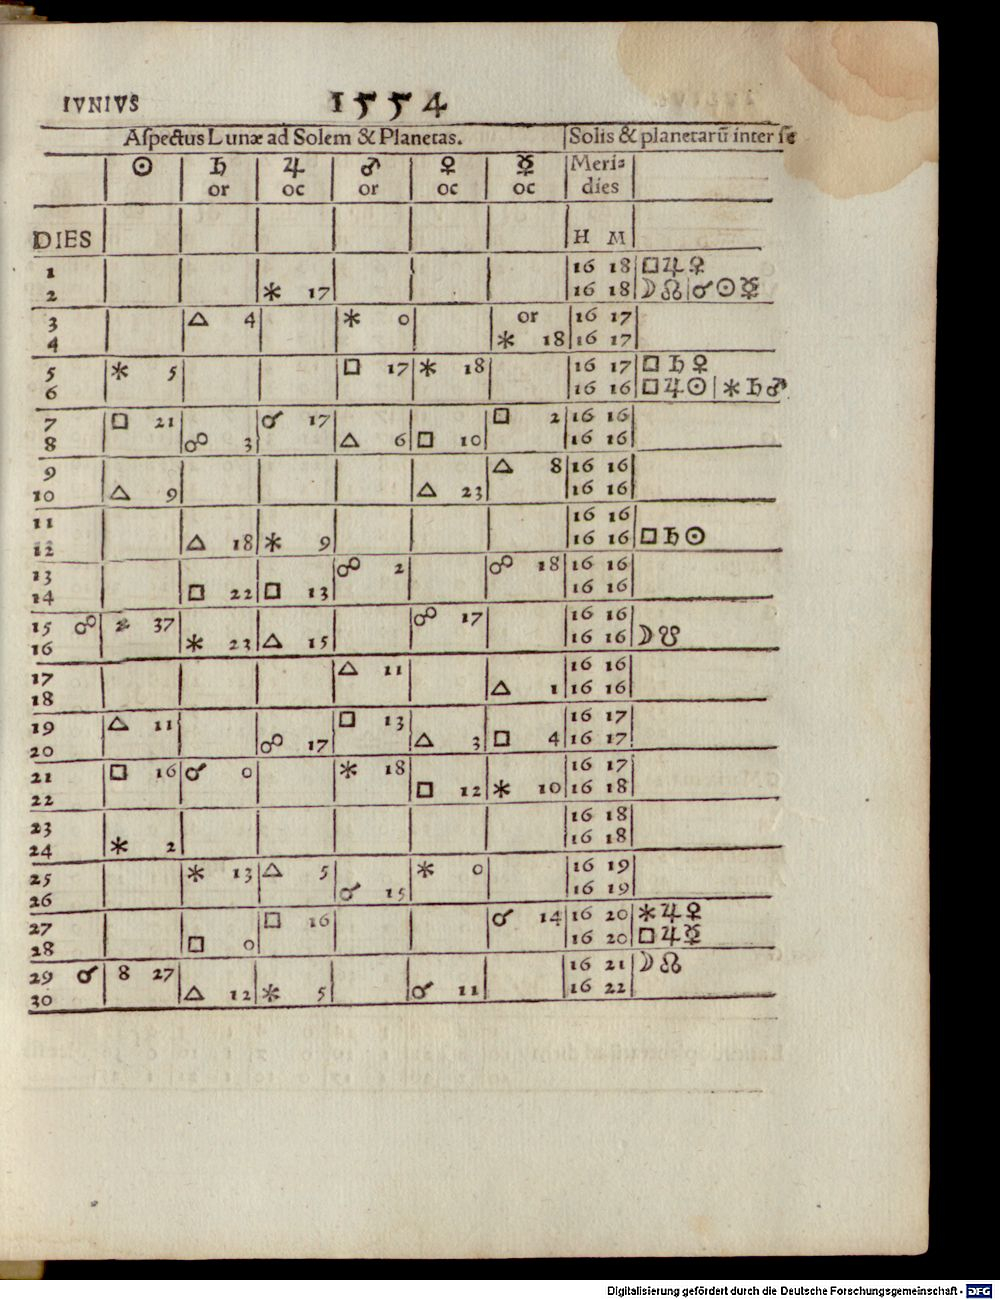 IVNIVS 1554
Aſpectus Lunæ ad Solem & Planetas. Solis & planetarũ inter ſe
☉ ♄ ♃ ♂ ♀ ☿ Meri=
or oc or oc oc dies
DIES H M
1 16 18 □♃♀
2 ✶ 17 16 18 ☽☊|☌☉☿
3 △ 4 ✶ 0 or 16 17
4 ✶ 18 16 17
5 ✶ 5 □ 17 ✶ 18 16 17 □♄♀
6 16 16 □♃☉|✶♄♂
7 □ 21 ☌ 17 □ 2 16 16
8 ☍ 3 △ 6 □ 10 16 16
9 △ 8 16 16
10 △ 9 △ 23 16 16
11 16 16
12 △ 18 ✶ 9 16 16 □♄☉
13 ☍ 2 ☍ 18 16 16
14 □ 22 □ 13 16 16
15 ☍ 2 37 ☍ 17 16 16
16 ✶ 23 △ 15 16 16 ☽☋
17 △ 11 16 16
18 △ 1 16 16
19 △ 11 □ 13 16 17
20 ☍ 17 △ 3 □ 4 16 17
21 □ 16 ☌ 0 ✶ 18 16 17
22 □ 12 ✶ 10 16 18
23 16 18
24 ✶ 2 16 18
25 ✶ 13 △ 5 ✶ 0 16 19
26 ☌ 15 16 19
27 □ 16 ☌ 14 16 20 ✶♃♀
28 □ 0 16 20 □♃☿
29 ☌ 8 27 16 21 ☽☊
30 △ 12 ✶ 5 ☌ 11 16 22
Digitalisierung gefördert durch die Deutsche Forschungsgemeinschaft - DFG